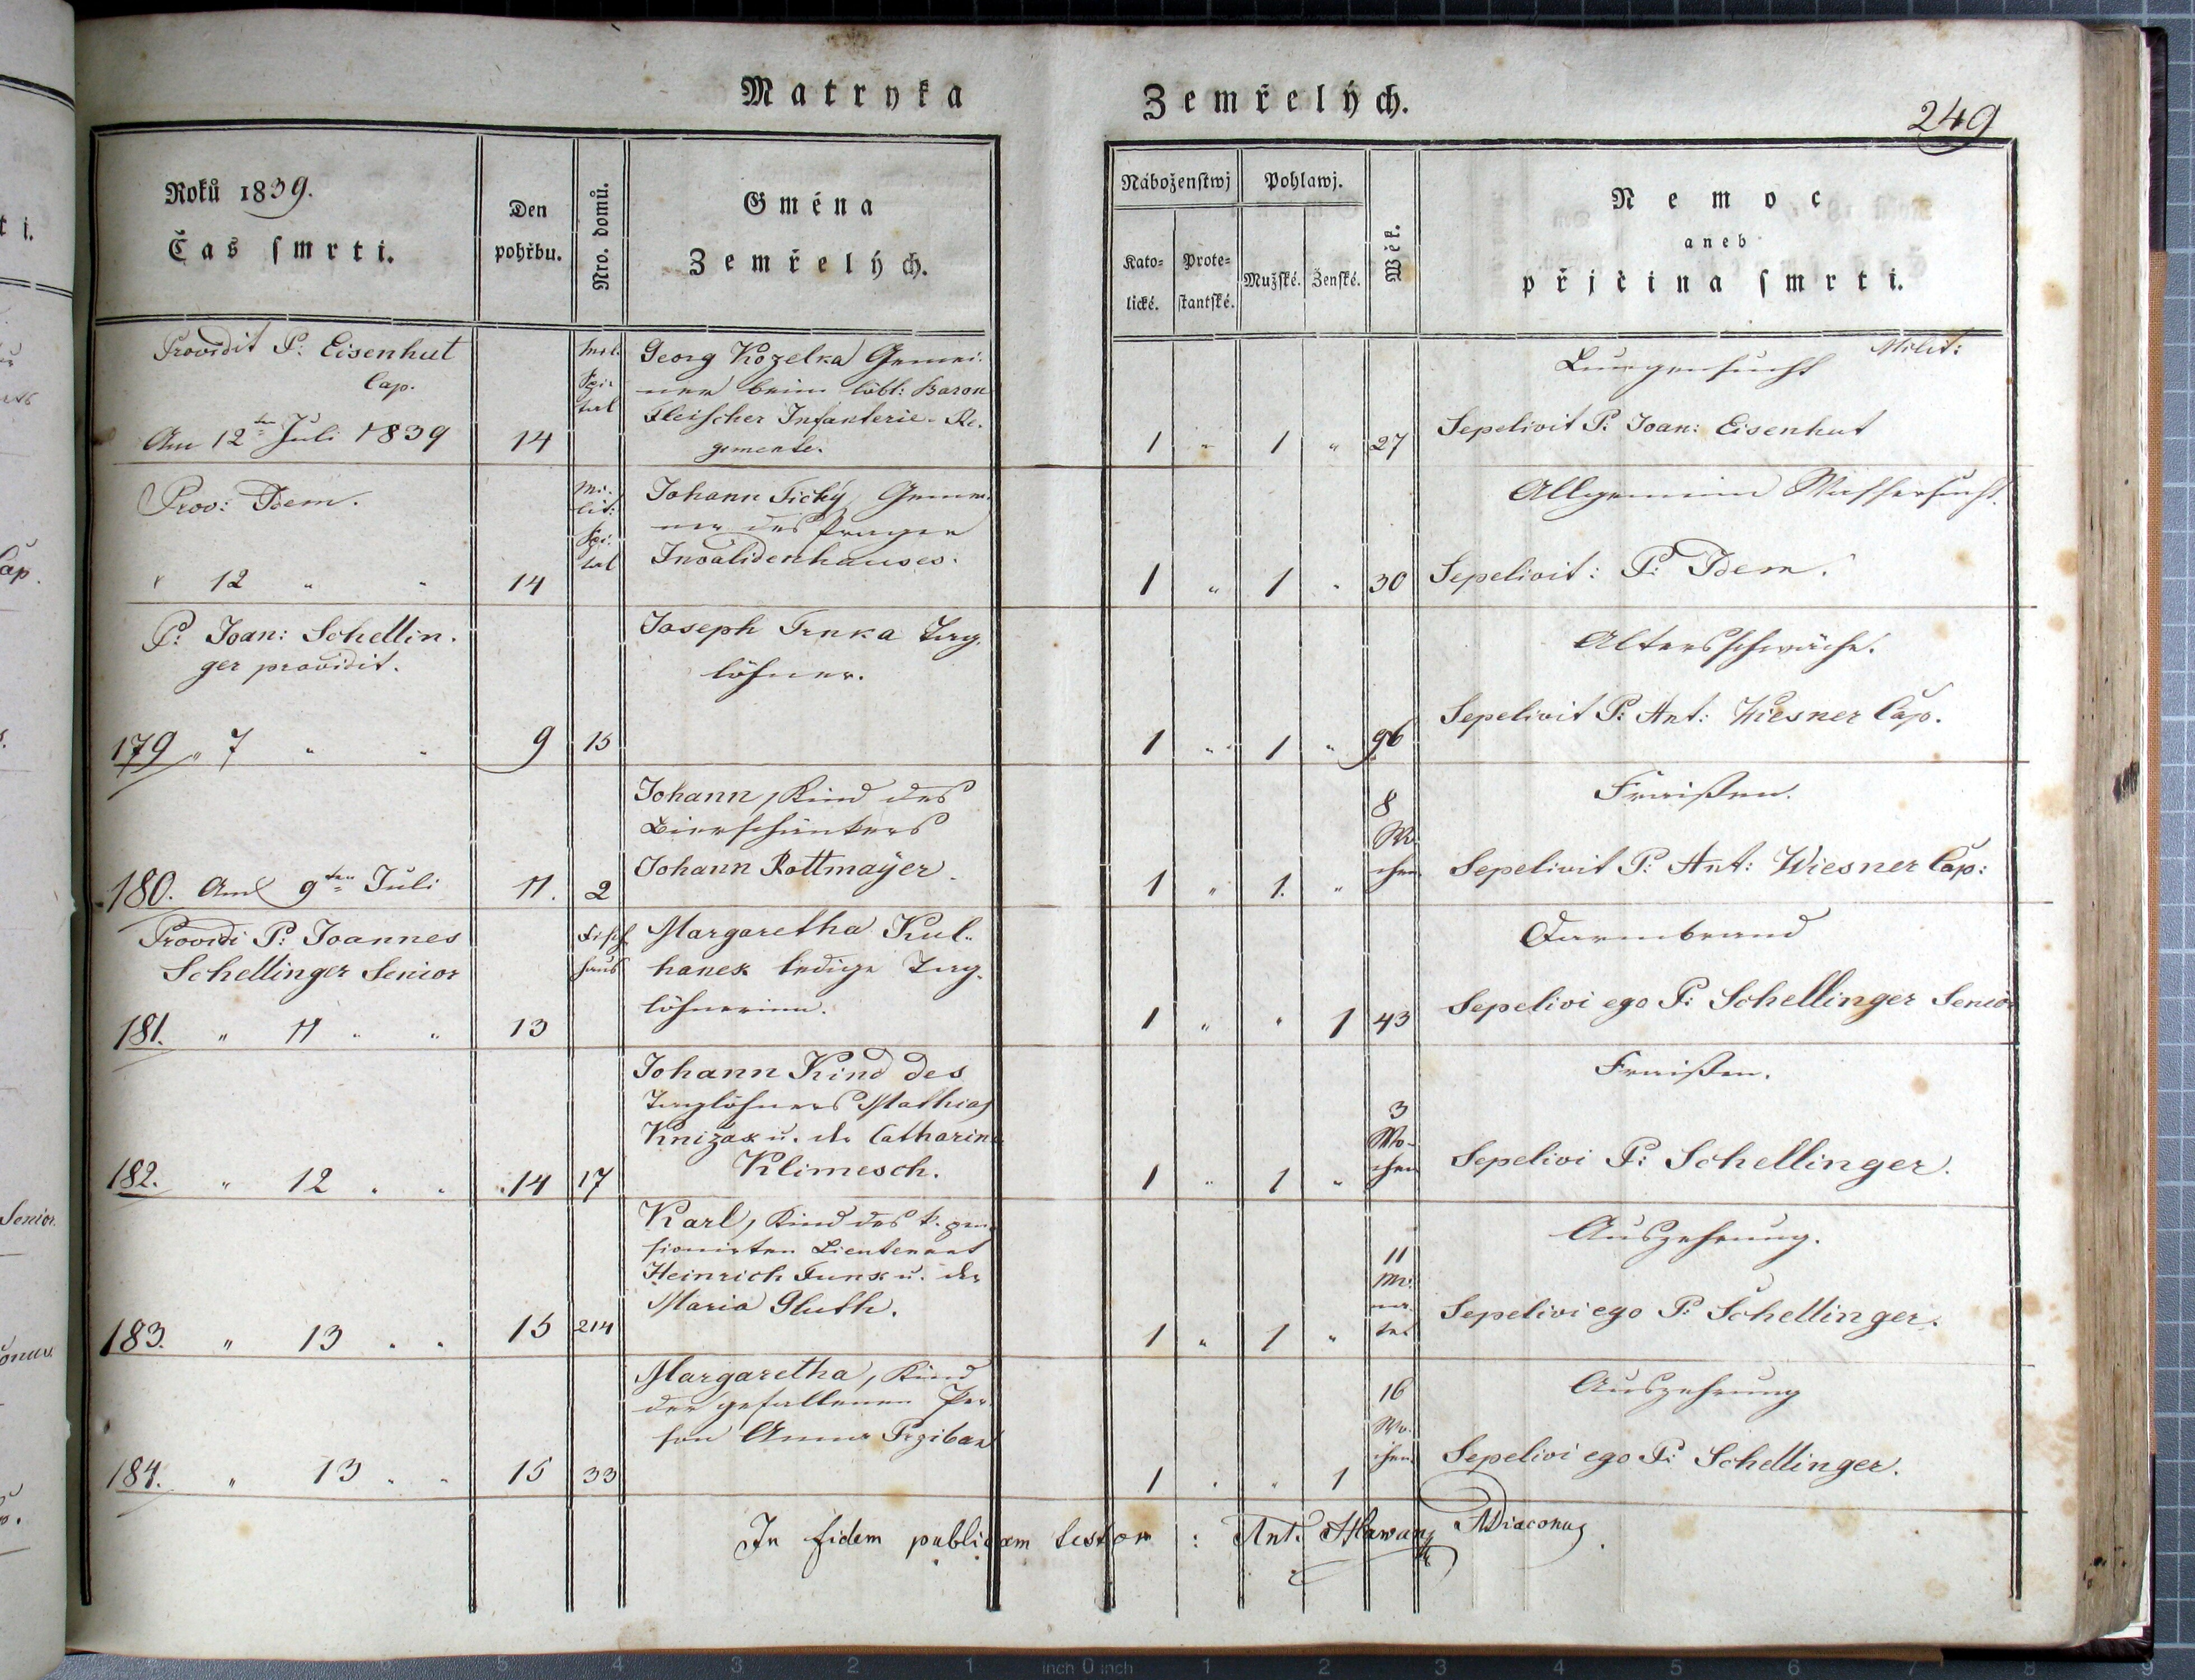 Matryka Zemřelých.
249
Roků 1839.
Čas smrti.
Den
pohřbu.
Nro. domů.
Gména
Zemřelých.
Náboženstwj
Kato-
lické.
Prote-
stantské.
Pohlawj.
Mužské.
Ženské.
Wěk.
Nemoc
aneb
přjčina smrti.
Providit P: Eisenhut
Cap.
Am 12ten Juli 1839
14
Mil:
Spi-
tal
Georg Kozelka Gemei-
ner beim löbl: Baron
Fleischer Infanterie-Re-
gimente.
1 " 1 " 27
Lungensucht Milit:
Sepelivit P: Joan: Eisenhut
Prov: Idem.
" 12 " "
14
Mi-
lit:
Spi-
tal
Johann Tichý, Gemei-
ner des Prager
Invalidenhauses.
1 " 1 " 30
Allgemeine Wassersucht.
Sepelivit: P: Idem.
P: Joan: Schellin-
ger providit.
179 " 7 " "
9
15
Joseph Trnka Tag-
löhner.
1 " 1 " 96
Altersschwäche.
Sepelivit P: Ant: Wiesner Cap.
180. Am 9ten Juli
11.
2
Johann, Kind des
Bierschänkers
Johann Rottmayer.
1 " 1. "
8
Wo-
chen
Fraißen.
Sepelivit P: Ant: Wiesner Cap:
Providi P: Joannes
Schellinger Senior
181. " 11 " "
13
Fisch
haus
Margaretha Kul-
hanek ledige Tag-
löhnerinn.
1 " " 1 43
Darmbrand
Sepelivi ego P: Schellinger Senior
182. " 12 " "
14
17
Johann Kind des
Taglöhners Mathias
Knizak u. der Catharina
Klimesch.
1 " 1 "
3
Wo-
chen
Fraißen.
Sepelivi P: Schellinger.
183. " 13 " "
15
214
Karl, Kind des k. pen-
sionirten Lieutenant
Heinrich Funk u. der
Maria Gluth.
1 " 1 "
11
Mo-
na-
te
Auszehrung.
Sepelivi ego P: Schellinger.
184. " 13 " "
15
33
Margaretha, Kind
der gefallenen Per-
son Anna Prziban
1 " " 1
16
Wo-
chen
Auszehrung
Sepelivi ego P: Schellinger.
In fidem publicam testor : Ant. ADiaconus